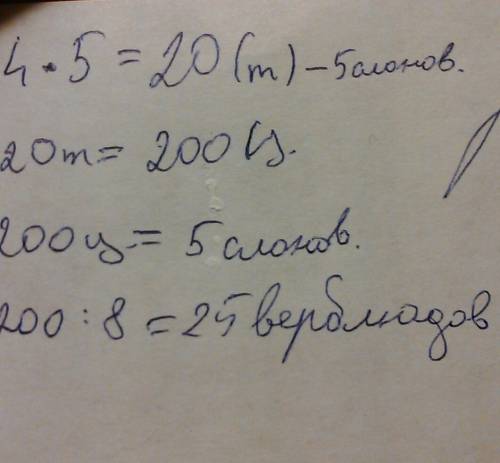 4 • 5 = 20 (т) - 5 слонов.
20 т = 200 ц.
200 ц. = 5 слонов.
200 : 8 = 25 верблюдов